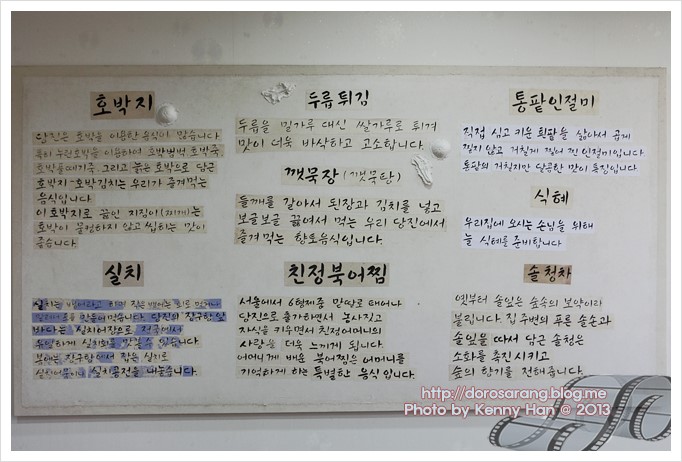 호박지
당진은 호박을 이용한 음식이 많습니다.
특히 늙은호박을 이용하여 호박범벅 호박죽,
호박을떼기죽 그리고 늙은 호박으로 담근
호박지·호박김치는 우리가 즐겨먹는
음식입니다.
이 호박지로 끓인 지짐이(찌개)는
호박이 물컹하지 않고 씹히는 맛이
좋습니다.
실치
실치는 뱅어라고 하며
만들어먹습니다. 당진의 장구항 앞
바다는 실치어장으로 전국에서
유일하게 실치회를 맛볼수 있습니다.
장구항에서 잡은 실치로
실치전을 내놓습니다.
두릅튀김
두릅을 밀가루 대신 쌀가루로 튀겨
맛이 더욱 바삭하고 고소합니다.
깻묵장(깻묵탕)
들깨를 갈아서 된장과 김치를 넣고
보글보글 끓여서 먹는 우리 당진에서
즐겨먹는 향토음식입니다.
친정북어찜
서울에서 6형제중 맏딸로 태어나
당진으로 출가하면서 농사짓고
자식을 키우면서 친정어머니의
사랑을 더욱 느끼게 됩니다.
어머니께 배운 북어찜은 어머니를
기억하게 하는 특별한 음식입니다.
통팥인절미
직접 심고 키운 흰팥을 삶아서 곱게
찧지않고 거칠게 찧어 찐 인절미입니다.
통팥의 거칠지만 달콤한 맛이 특징입니다.
식혜
우리집에 오시는 손님을 위해
늘 식혜를 준비합니다
솔청차
옛부터 솔잎은 숲속의 보약이라
불립니다. 집 주변의 푸른 솔순과
솔잎을 따서 담근 솔청은
소화를 촉진시키고
솔의 향기를 전해줍니다.
http://dorosarang.blog.me
Photo by Kenny Han @ 2013